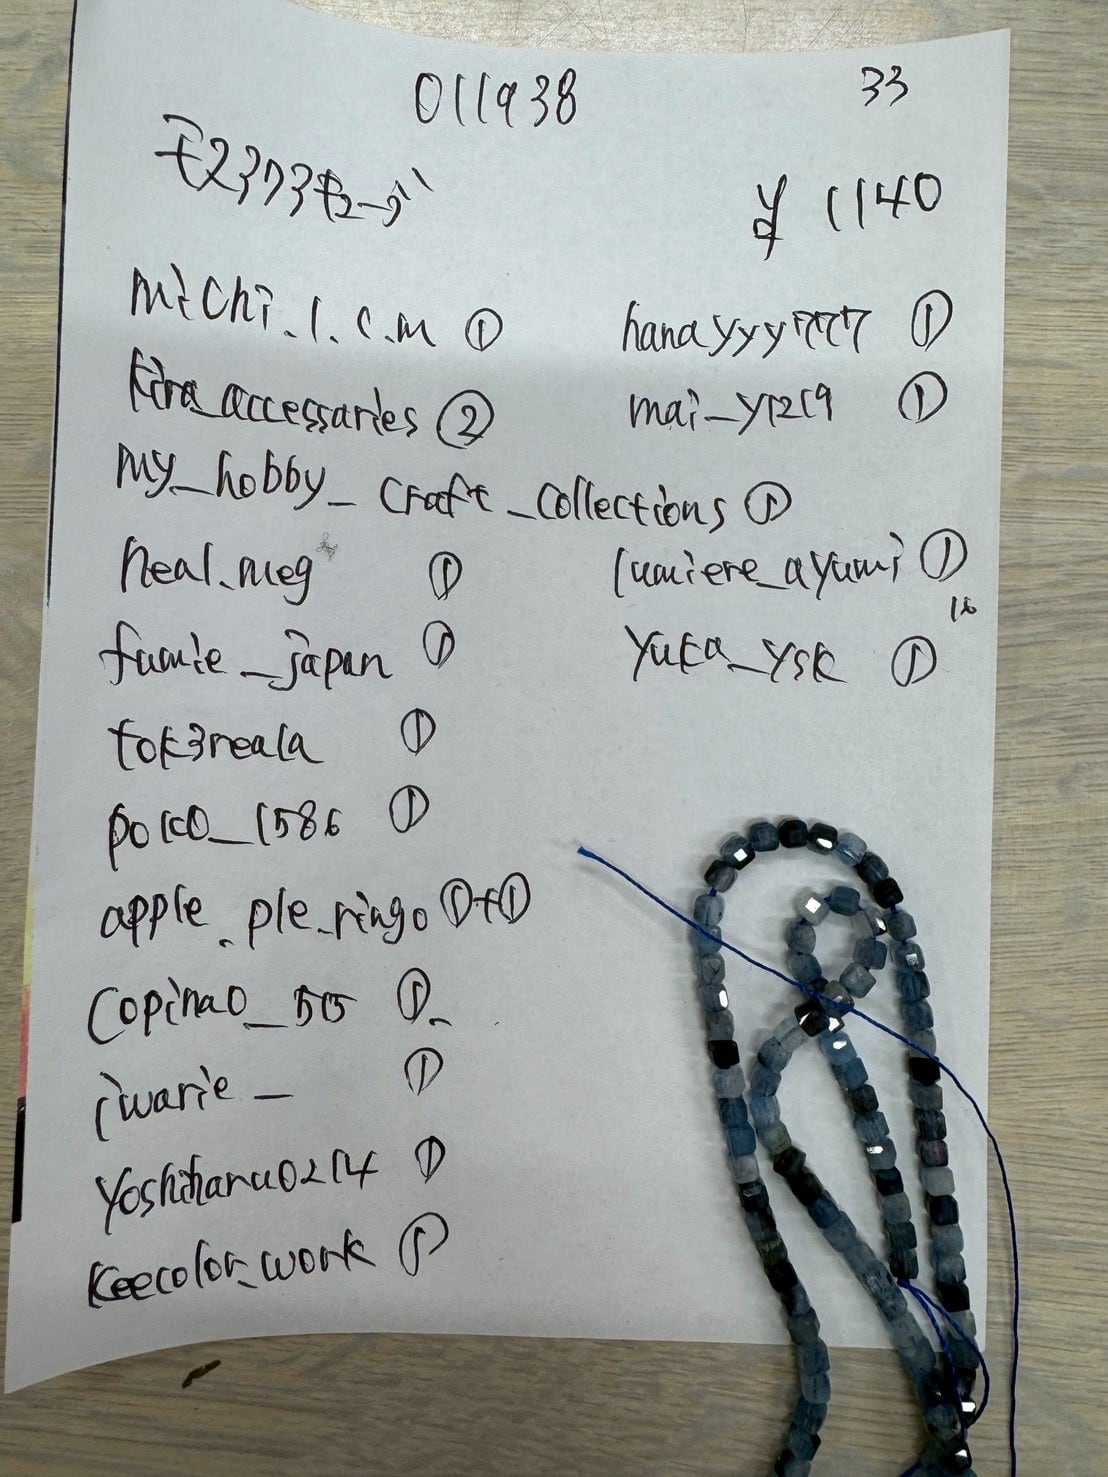 011938 33
¥ 1140
michi.1.c.m ①
hanayyy777 ①
kira_accessaries ②
mai_y1219 ①
my_hobby_craft_collections ①
neal.meg ①
lumiere_ayumi ①
16
fumie_japan ①
yuka_ysk ①
tok3reala ①
poko_1586 ①
apple.ple_ringo ①+①
copinao_515 ①
iwarie_ ①
yoshiharu0214 ①
keecolor_work ①